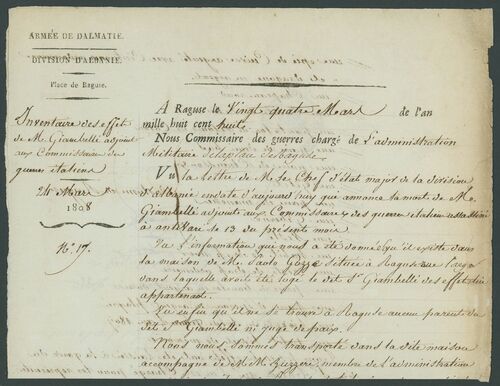 ARMÉE DE DALMATIE.
DIVISION D'ALBANIE.
Place de Raguse.
Inventaire des effets
de M. Giambelli adjoint
aux Commissaires des
guerres italiens
24 Mars
1808
N.° 17.
A Raguse le Vingt quatre Mars de l'an
mille huit cent huit
Nous Commissaire des guerres chargé de l'administration
Militaire de la place de Raguse.
Vu la Lettre de M. le Chef d'état major de la division
d'albanie en date d'aujourd'huy qui annonce la mort de M.
Giambelli adjoint aux Commissaires des guerres italiens assassiné
à antivare le 13 du présent mois
Vu l'information qui nous a été donnée qu'il existe dans
la maison de M. Paolo Gozze située à Raguse rue Larga
dans laquelle avoit été logé le dit S. Giambelli des effets lui
appartenant.
Vu enfin qu'il ne se trouve à Raguse aucun parent du
dit S. Giambelli ni juge de paix.
Nous nous sommes transporté dans la dite maison
accompagné de M. M. membre de l'administration